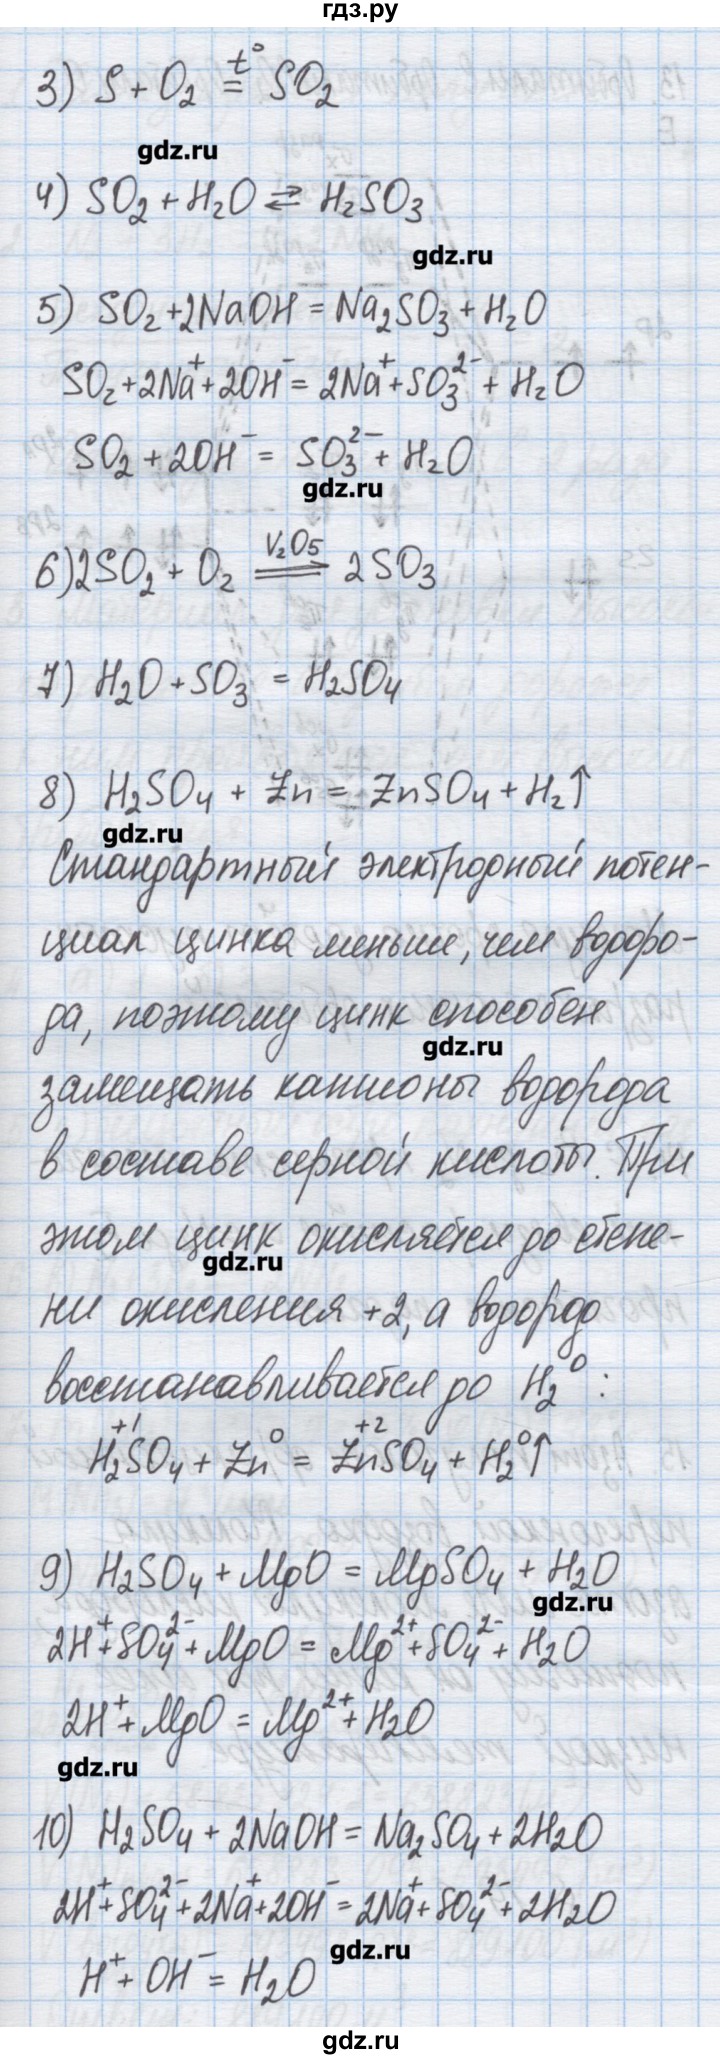 гдз.ру
3) S + O₂ =(t°) SO₂
gdz.ru
4) SO₂ + H₂O ⇄ H₂SO₃
gdz.ru
5) SO₂ + 2NaOH = Na₂SO₃ + H₂O
SO₂ + 2Na⁺ + 2OH⁻ = 2Na⁺ + SO₃²⁻ + H₂O
SO₂ + 2OH⁻ = SO₃²⁻ + H₂O
gdz.ru
V₂O₅
6) 2SO₂ + O₂ ⇌ 2SO₃
7) H₂O + SO₃ = H₂SO₄
8) H₂SO₄ + Zn = ZnSO₄ + H₂↑
gdz.ru
Стандартный электродный потен-
циал цинка меньше, чем водоро-
да, поэтому цинк способен
gdz.ru
замещать катионы водорода
в составе серной кислоты. При
этом цинк окисляется до степе-
gdz.ru
ни окисления +2, а водород
восстанавливается до H₂⁰ :
H₂⁺¹SO₄ + Zn⁰ = Zn⁺²SO₄ + H₂⁰↑
9) H₂SO₄ + MgO = MgSO₄ + H₂O
gdz.ru
2H⁺ + SO₄²⁻ + MgO = Mg²⁺ + SO₄²⁻ + H₂O
2H⁺ + MgO = Mg²⁺ + H₂O
gdz.ru
10) H₂SO₄ + 2NaOH = Na₂SO₄ + 2H₂O
2H⁺ + SO₄²⁻ + 2Na⁺ + 2OH⁻ = 2Na⁺ + SO₄²⁻ + 2H₂O
gdz.ru
H⁺ + OH⁻ = H₂O
gdz.ru